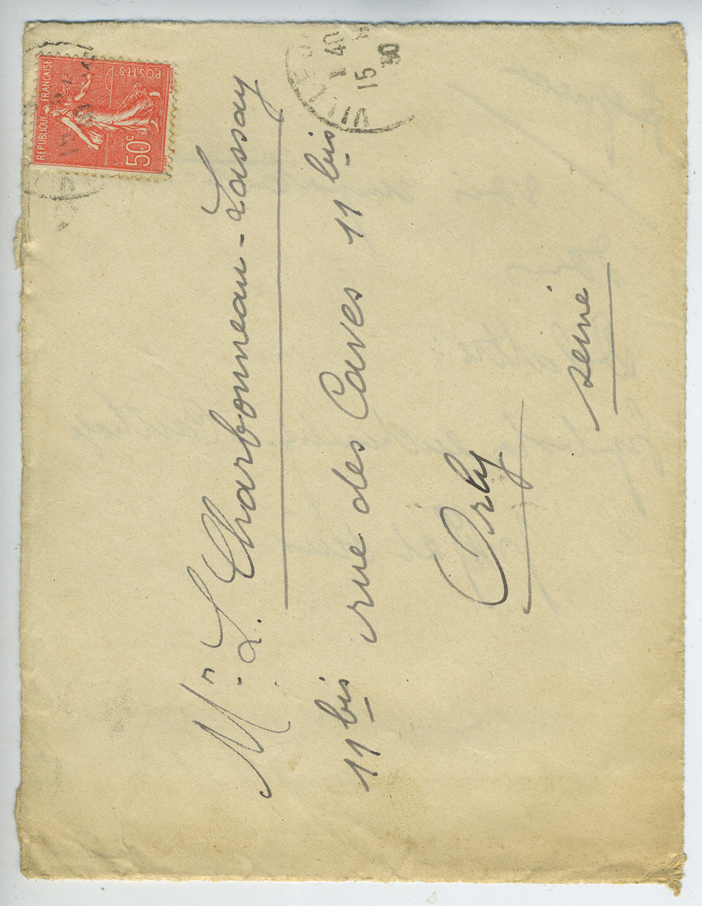 REPUBLIQUE FRANÇAISE
POSTES
50c
40
15
30
Mr L. Charbonneau-Lassay
11 bis rue des Caves 11 bis
Orly
Seine